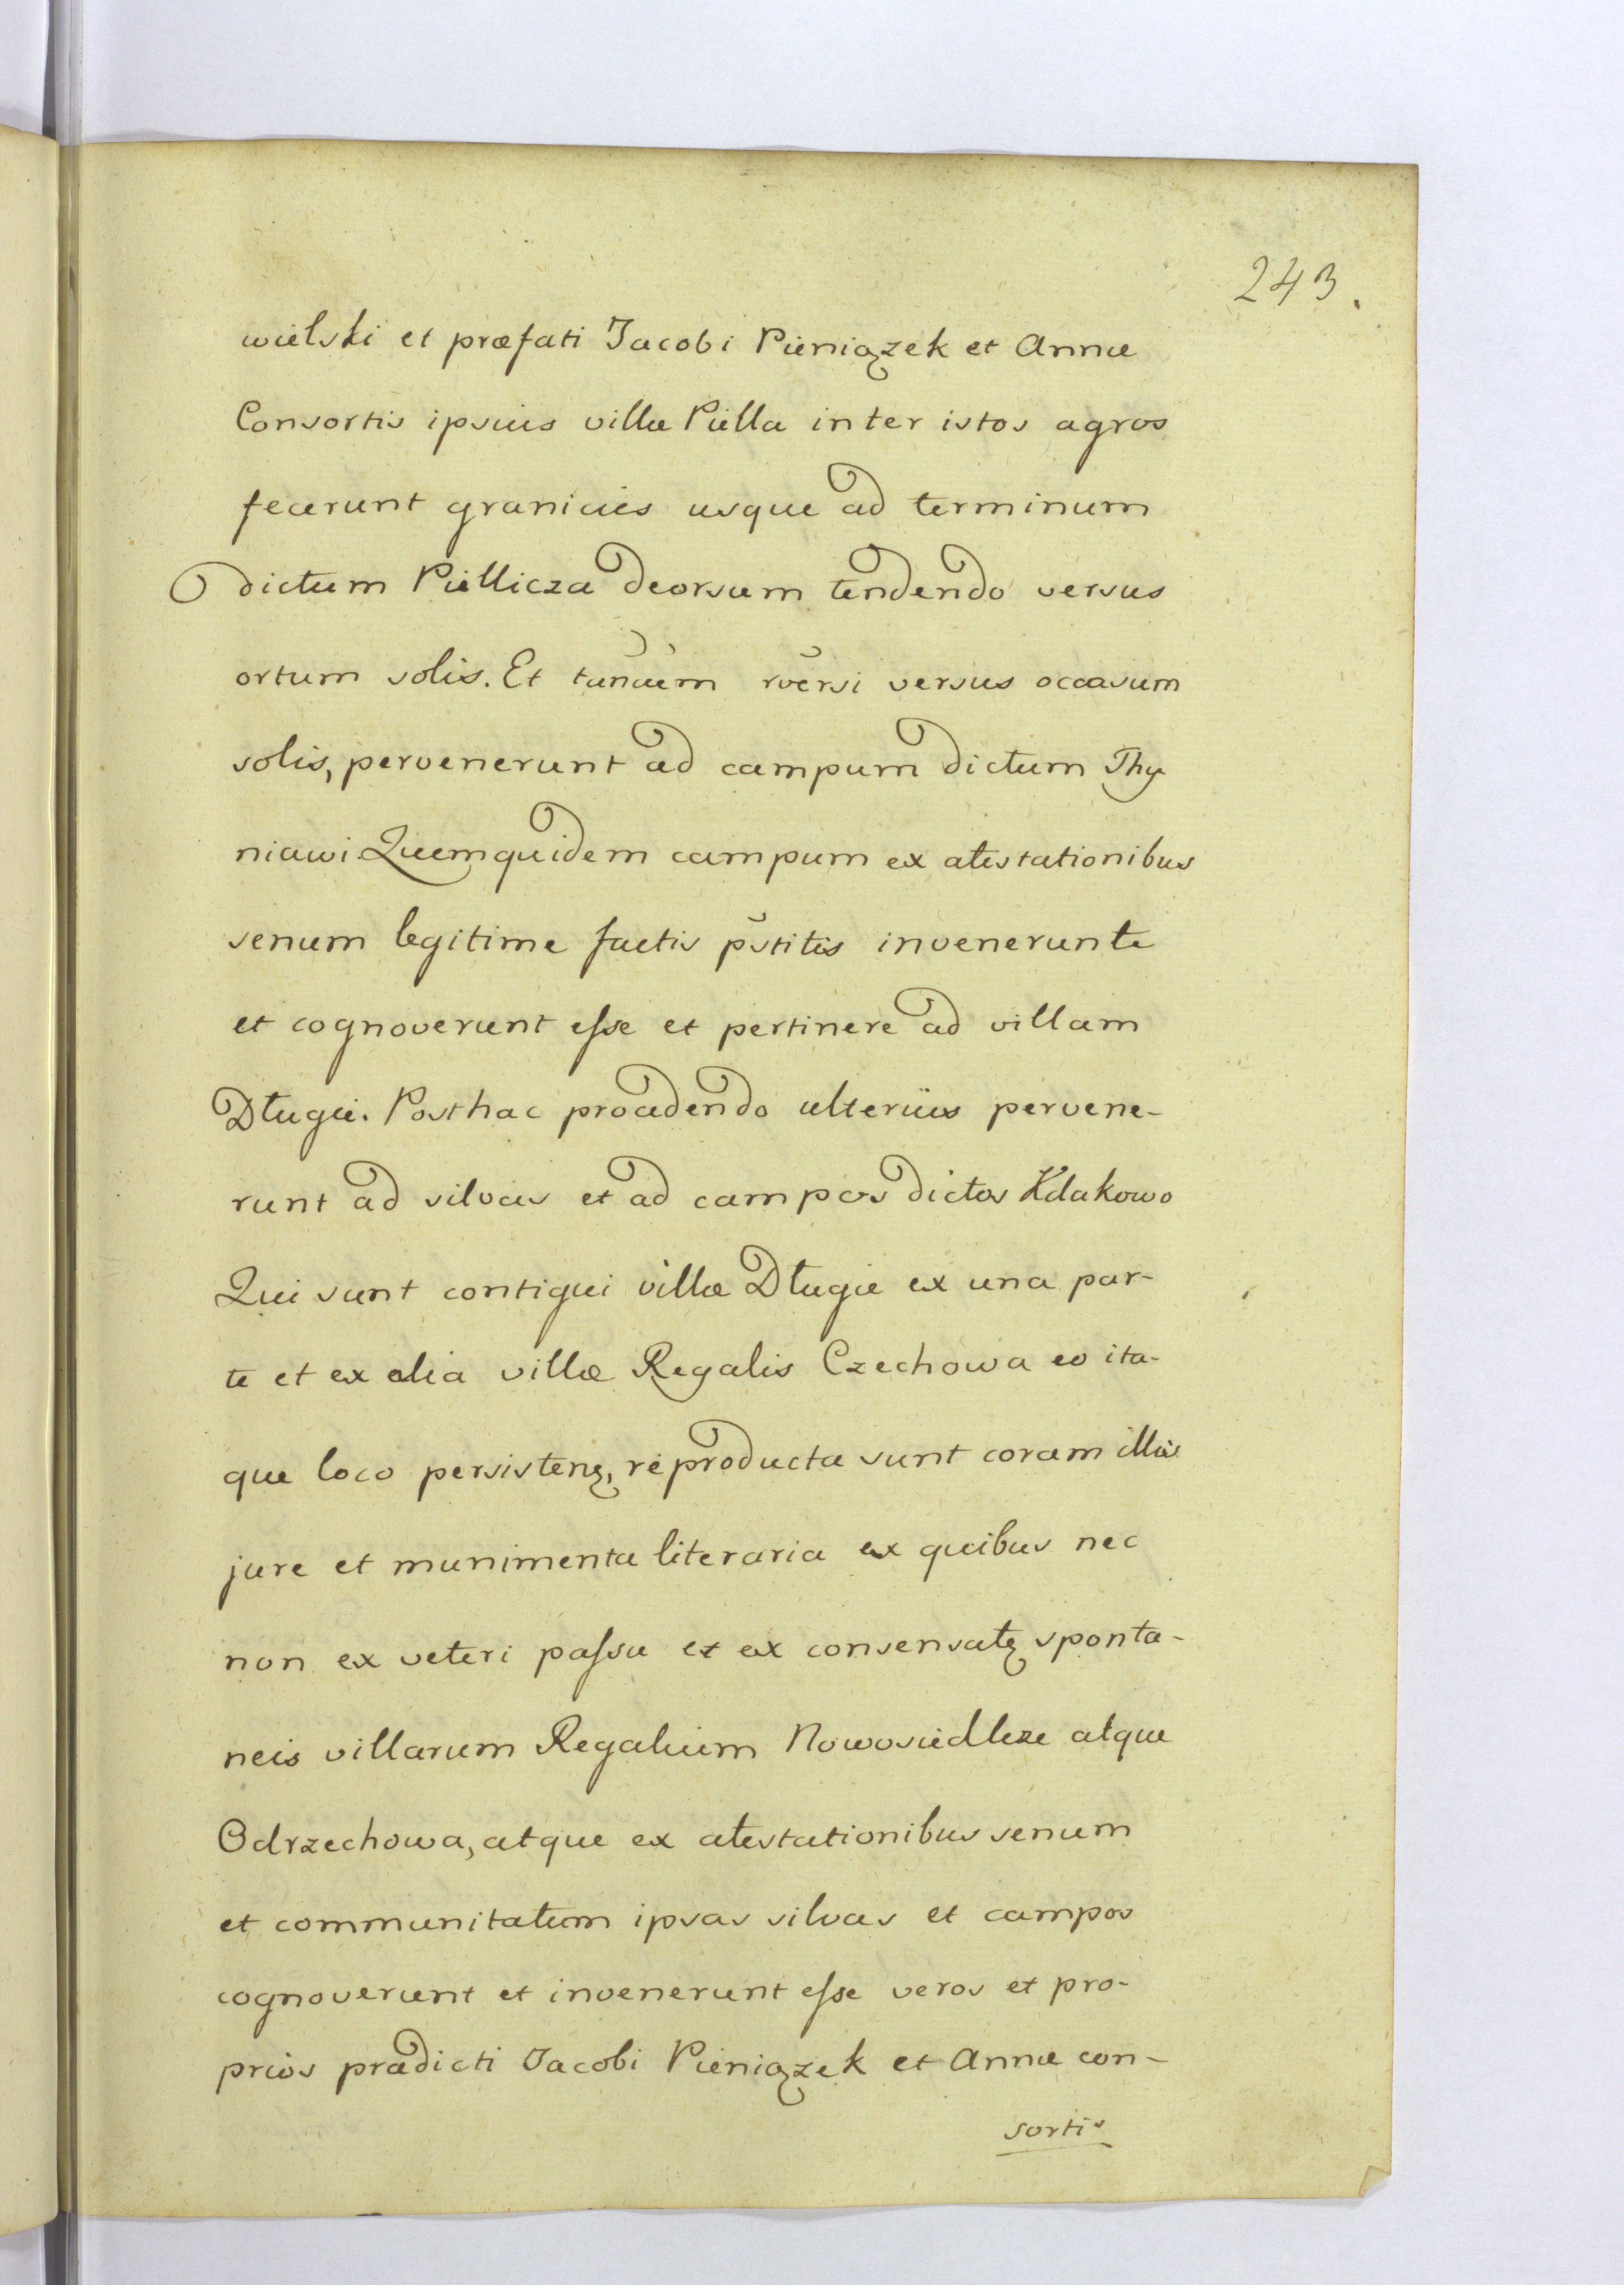 243.
wielski et præfati Jacobi Pieniązek et Annæ
Consortis ipsius villæ Piella inter istos agros
fecerunt granicies usque ad terminum
dictum Piellicza deorsum tendendo versus
ortum solis. Et tandem rversi versus occasum
solis, pervenerunt ad campum dictum Thy
niawi Quemquidem campum ex atestationibus
senum legitime factis pstitis invenerunte
et cognoverunt esse et pertinere ad villam
Długie. Posthac procedendo ulterius pervene-
runt ad silvas et ad campos dictos Kdakowo
Qui sunt contigui villæ Długie ex una par-
te et ex alia villæ Regalis Czechowa eo ita-
que loco persisteñ, reproducta sunt coram illis
jure et munimenta literaria ex quibus nec
non ex veteri passu et ex consensatę sponta-
neis villarum Regalium Nowosiedlcze atque
Odrzechowa, atque ex atestationibus senum
et communitatum ipsas silvas et campos
cognoverunt et invenerunt esse veros et pro-
prios prædicti Jacobi Pieniązek et Annæ con-
sortis